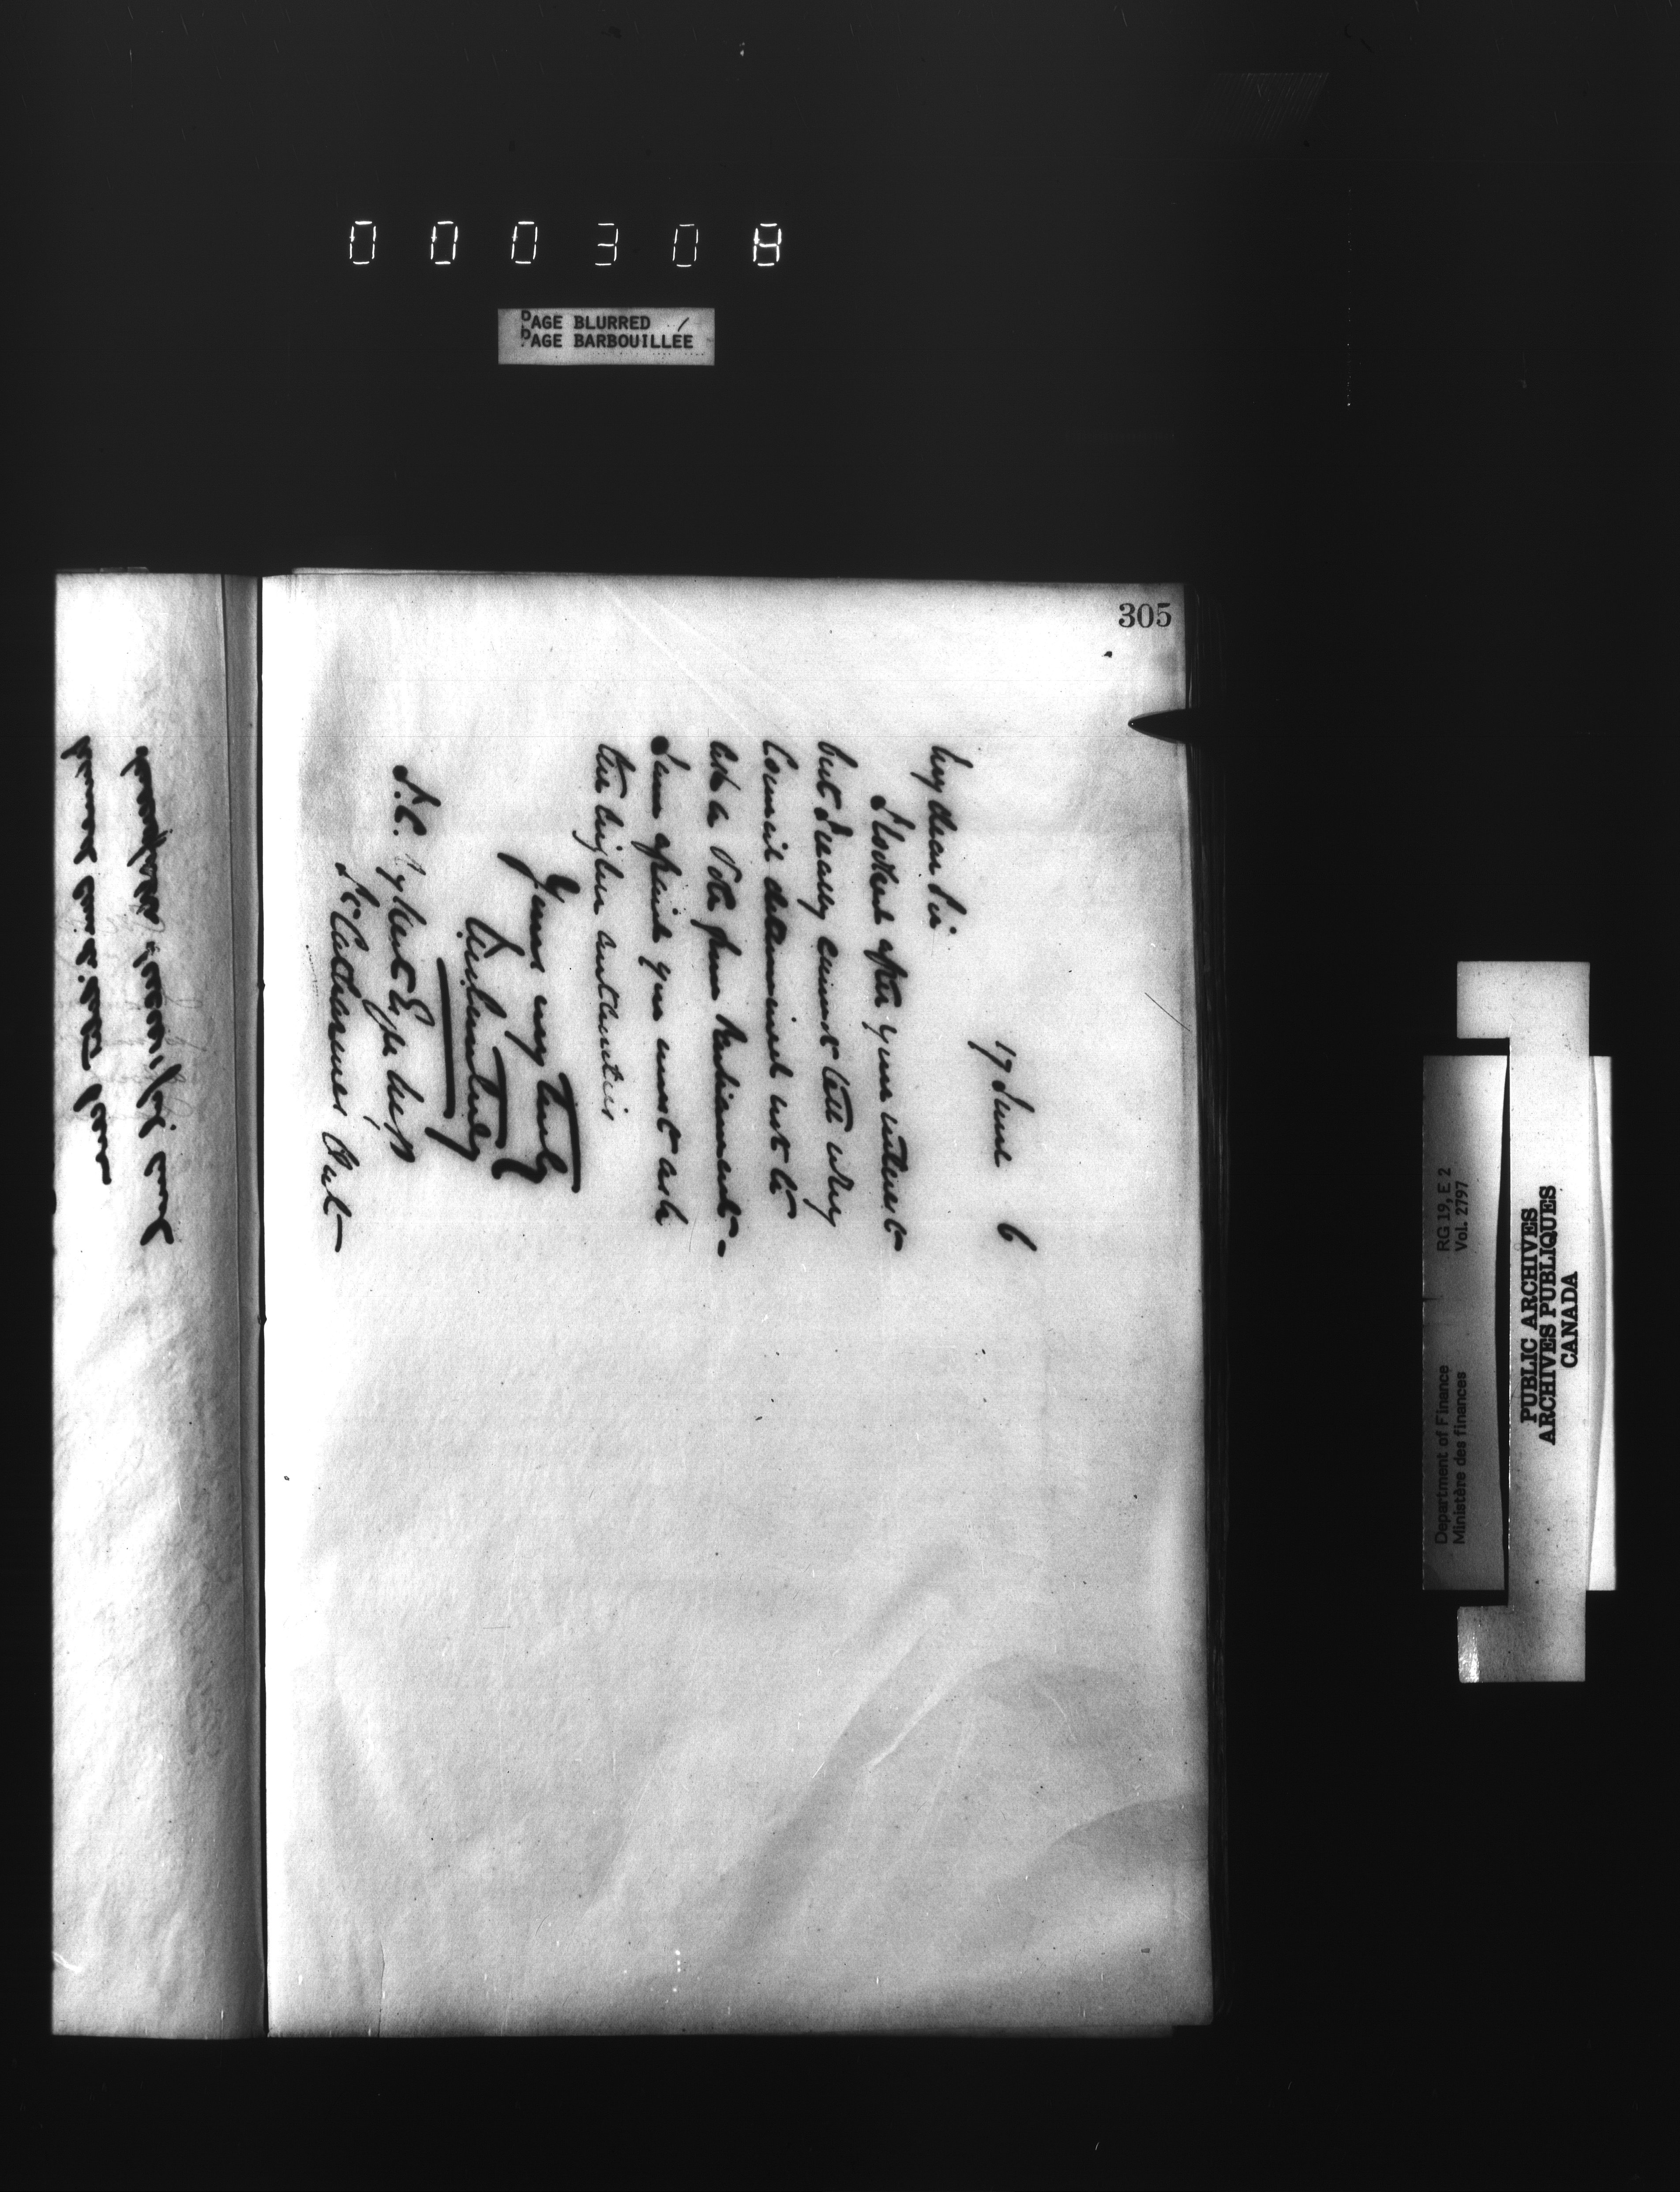 000308
PAGE BLURRED
PAGE BARBOUILLÉE
305
17 June 6
My dear Sir
I looked after your interest
but I really cannot tell why
Council determined not to
ask a Vote from Parliament -
I am afraid you must ask
the higher authorities
Yours very truly
J.C. Rykert Esqr
St Catharines
RG 19, E 2
Vol. 2797
Department of Finance
Ministère des finances
PUBLIC ARCHIVES
ARCHIVES PUBLIQUES
CANADA